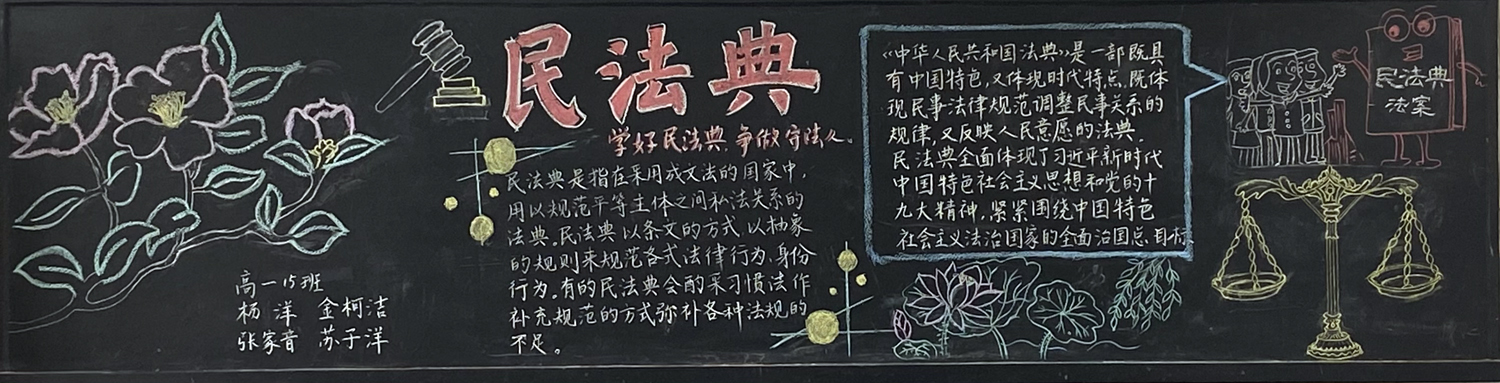 民法典
学好民法典 争做守法人。
民法典是指在采用成文法的国家中，
用以规范平等主体之间私法关系的
法典。民法典以条文的方式，以抽象
的规则来规范各式法律行为、身份
行为。有的民法典会酌采习惯法作
补充规范的方式弥补各种法规的
不足。
《中华人民共和国法典》是一部既具
有中国特色，又体现时代特点，既体
现民事法律规范调整民事关系的
规律，又反映人民意愿的法典。
民法典全面体现了习近平新时代
中国特色社会主义思想和党的十
九大精神，紧紧围绕中国特色
社会主义法治国家的全面治国总目标
民法典
法案
高一15班
杨洋 金柯洁
张家音 苏子洋